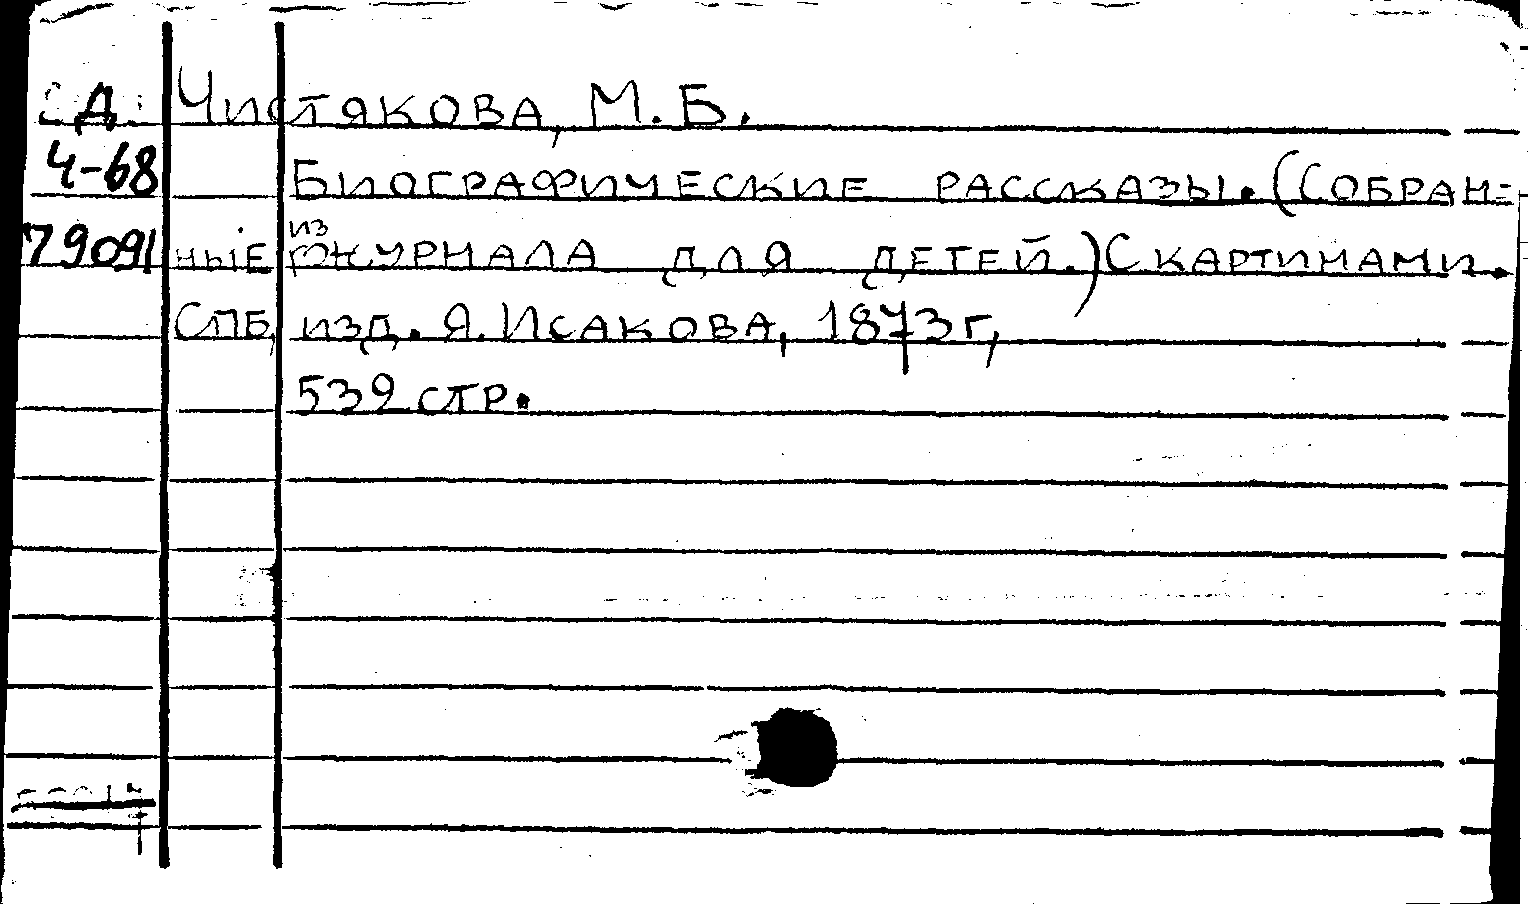 Д Чистякова, М. Б.
Ч-68 Биографические рассказы. (Собран=
79091 ныiе из журнала для детей.) С картинами.
СПБ, изд. Я. Исакова, 1873 г,
539 стр.